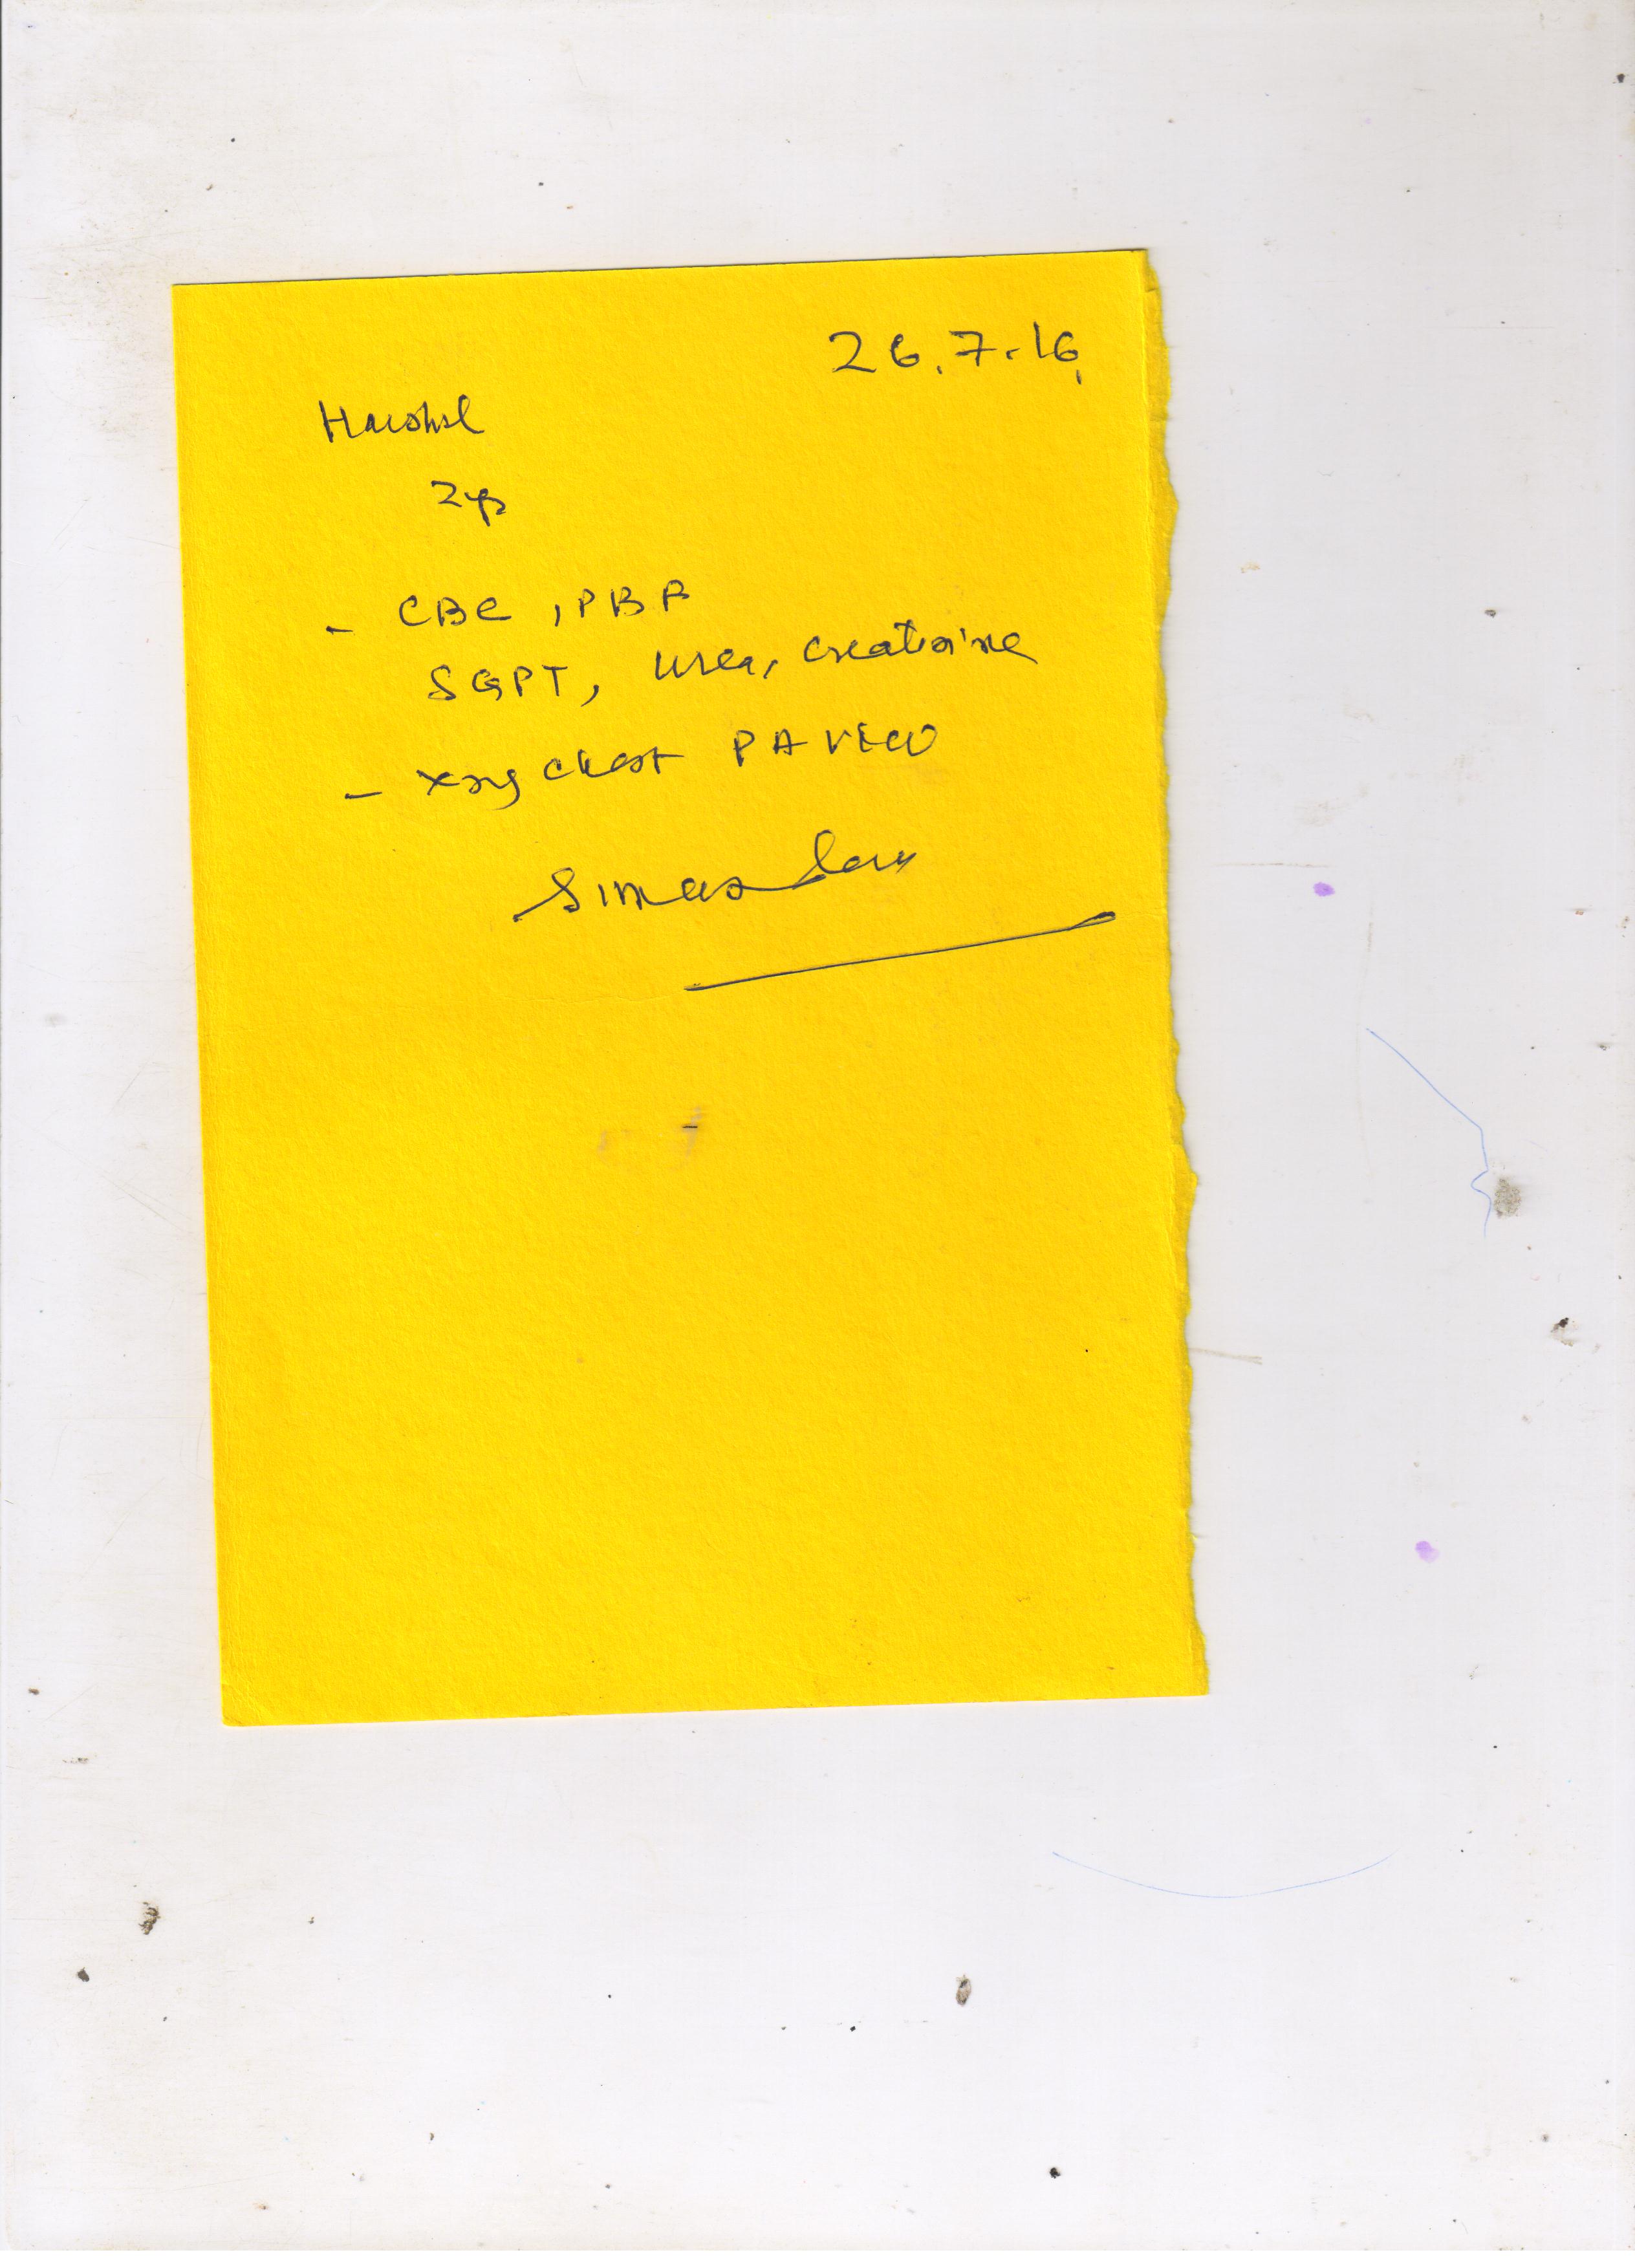 26.7.16
Harshal
2yr
- CBC, PBF
SGPT, urea, creatinine
- xray chest PA VIEW